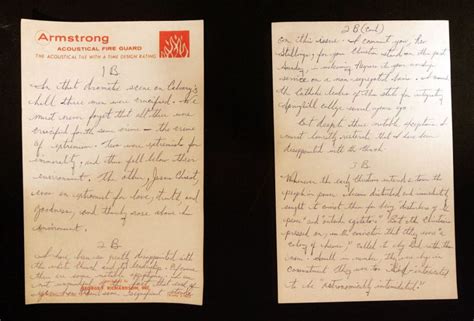 Armstrong
ACOUSTICAL FIRE GUARD
THE ACOUSTICAL TILE WITH A TIME DESIGN RATING
1 B
In that dramatic scene on Calvary's
hill three men were crucified. We
must never forget that all three were
crucified for the same crime — the crime
of extremism. Two were extremists for
immorality, and thus fell below their
environment. The other, Jesus Christ,
was an extremist for love, truth, and
goodness, and thereby rose above his
environment.
2 B
I have been so greatly disappointed with
the white church and its leadership. Of course,
there are some notable exceptions. I am
not unmindful of the fact that each of
you has taken some significant stands
2 B (cont)
on this issue. I commend you, Rev
Stallings, for your Christian stand on this past
Sunday, in welcoming Negroes to your worship
service on a non segregated basis. I commend
the Catholic leaders of this state for integrating
Springhill college several years ago.
But despite these notable exceptions I
must honestly reiterate that I have been
disappointed with the church.
3 B
Whenever the early Christians entered a town the
people in power became disturbed and immediately
sought to convict them for being "disturbers of the
peace" and "outside agitators." But the Christians
pressed on, in the conviction that they were "a
colony of heaven," called to obey God
man. Small in number, they were big in
commitment. They were too God-intoxicated
to be "astronomically intimidated."